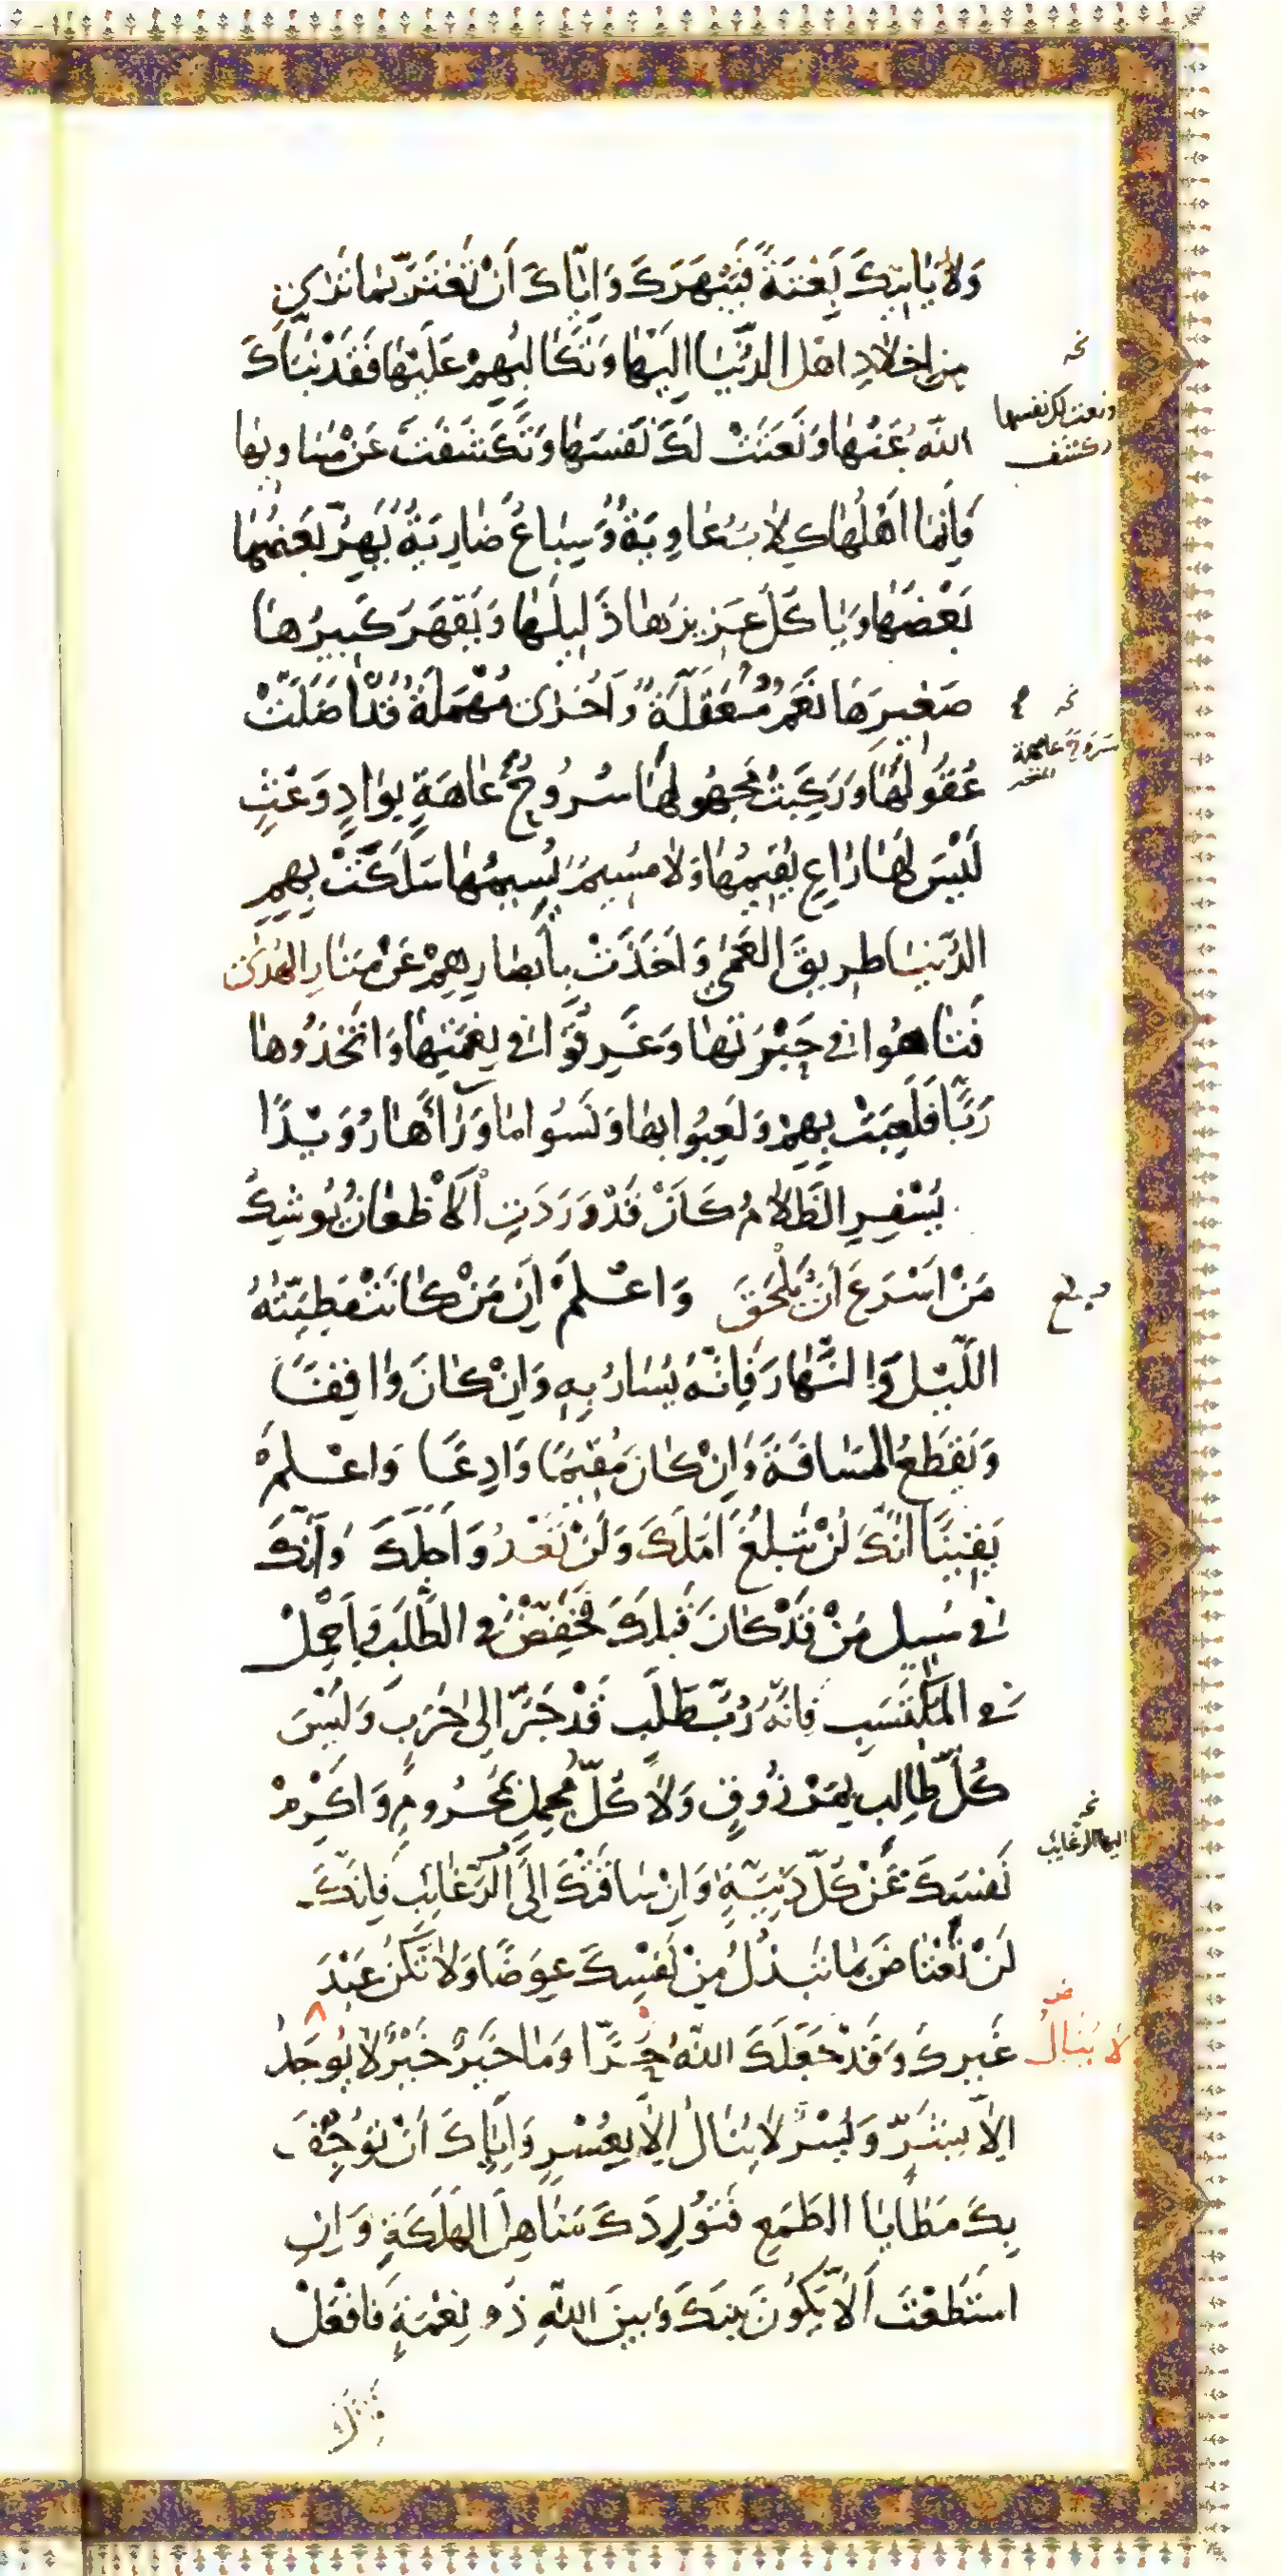 وَلَا يَاتِيكَ بَغْتَةً فَيَبْهَرَكَ وَاِيَّاكَ اَنْ تَغْتَرَّ بِمَا تَرٰى
مِنْ اِخْلَادِ اَهْلِ الدُّنْيَا اِلَيْهَا وَتَكَالُبِهِمْ عَلَيْهَا فَقَدْ نَبَّاَكَ
نخه
اللّٰهُ عَنْهَا وَنَعَتَتْ لَكَ نَفْسَهَا وَتَكَشَّفَتْ عَنْ مَسَاوِيهَا
ونعت لك نفسها
وَاِنَّمَا اَهْلُهَا كِلَابٌ عَاوِيَةٌ وَسِبَاعٌ ضَارِيَةٌ يَهِرُّ بَعْضُهَا
بَعْضَهَا وَيَاكُلُ عَزِيزُهَا ذَلِيلَهَا وَيَقْهَرُ كَبِيرُهَا
صَغِيرَهَا نَعَمٌ مُعَقَّلَةٌ وَاُخْرٰى مُهْمَلَةٌ قَدْ اَضَلَّتْ
نخه
عُقُولَهَا وَرَكِبَتْ مَجْهُولَهَا سُرُوحُ عَاهَةٍ بِوَادٍ وَعْثٍ
لَيْسَ لَهَا رَاعٍ يُقِيمُهَا وَلَا مُسِيمٌ يُسِيمُهَا سَلَكَتْ بِهِمِ
الدُّنْيَا طَرِيقَ الْعَمٰى وَاَخَذَتْ بِاَبْصَارِهِمْ عَنْ مَنَارِ الْهُدٰى
فَتَاهُوا فِي حَيْرَتِهَا وَغَرِقُوا فِي نِعْمَتِهَا وَاتَّخَذُوهَا
رَبًّا فَلَعِبَتْ بِهِمْ وَلَعِبُوا بِهَا وَنَسُوا مَا وَرَآءَهَا رُوَيْدًا
يُسْفِرِ الظَّلَامُ كَاَنْ قَدْ وَرَدَتِ الْاَظْعَانُ يُوشِكُ
مَنْ اَسْرَعَ اَنْ يَلْحَقَ وَاعْلَمْ اَنَّ مَنْ كَانَتْ مَطِيَّتُهُ
اللَّيْلَ وَالنَّهَارَ فَاِنَّهُ يُسَارُ بِهِ وَاِنْ كَانَ وَاقِفًا
وَيَقْطَعُ الْمَسَافَةَ وَاِنْ كَانَ مُقِيمًا وَادِعًا وَاعْلَمْ
يَقِينًا اَنَّكَ لَنْ تَبْلُغَ اَمَلَكَ وَلَنْ تَعْدُوَ اَجَلَكَ وَاَنَّكَ
فِي سَبِيلِ مَنْ قَدْ كَانَ قَبْلَكَ فَخَفِّضْ فِي الطَّلَبِ وَاَجْمِلْ
فِي الْمُكْتَسَبِ فَاِنَّهُ رُبَّ طَلَبٍ قَدْ جَرَّ اِلٰى حَرَبٍ وَلَيْسَ
كُلُّ طَالِبٍ بِمَرْزُوقٍ وَلَا كُلُّ مُجْمِلٍ بِمَحْرُومٍ وَاَكْرِمْ
نخه
اليها الرغايب
نَفْسَكَ عَنْ كُلِّ دَنِيَّةٍ وَاِنْ سَاقَتْكَ اِلَى الرَّغَائِبِ فَاِنَّكَ
لَنْ تَعْتَاضَ بِمَا تَبْذُلُ مِنْ نَفْسِكَ عِوَضًا وَلَا تَكُنْ عَبْدَ
غَيْرِكَ وَقَدْ جَعَلَكَ اللّٰهُ حُرًّا وَمَا خَيْرُ خَيْرٍ لَا يُوجَدُ
لَا يُنَالُ
اِلَّا بِشَرٍّ وَيُسْرٍ لَا يُنَالُ اِلَّا بِعُسْرٍ وَاِيَّاكَ اَنْ تُوجِفَ
بِكَ مَطَايَا الطَّمَعِ فَتُورِدَكَ مَنَاهِلَ الْهَلَكَةِ وَاِنِ
اسْتَطَعْتَ اَلَّا يَكُونَ بَيْنَكَ وَبَيْنَ اللّٰهِ ذُو نِعْمَةٍ فَافْعَلْ